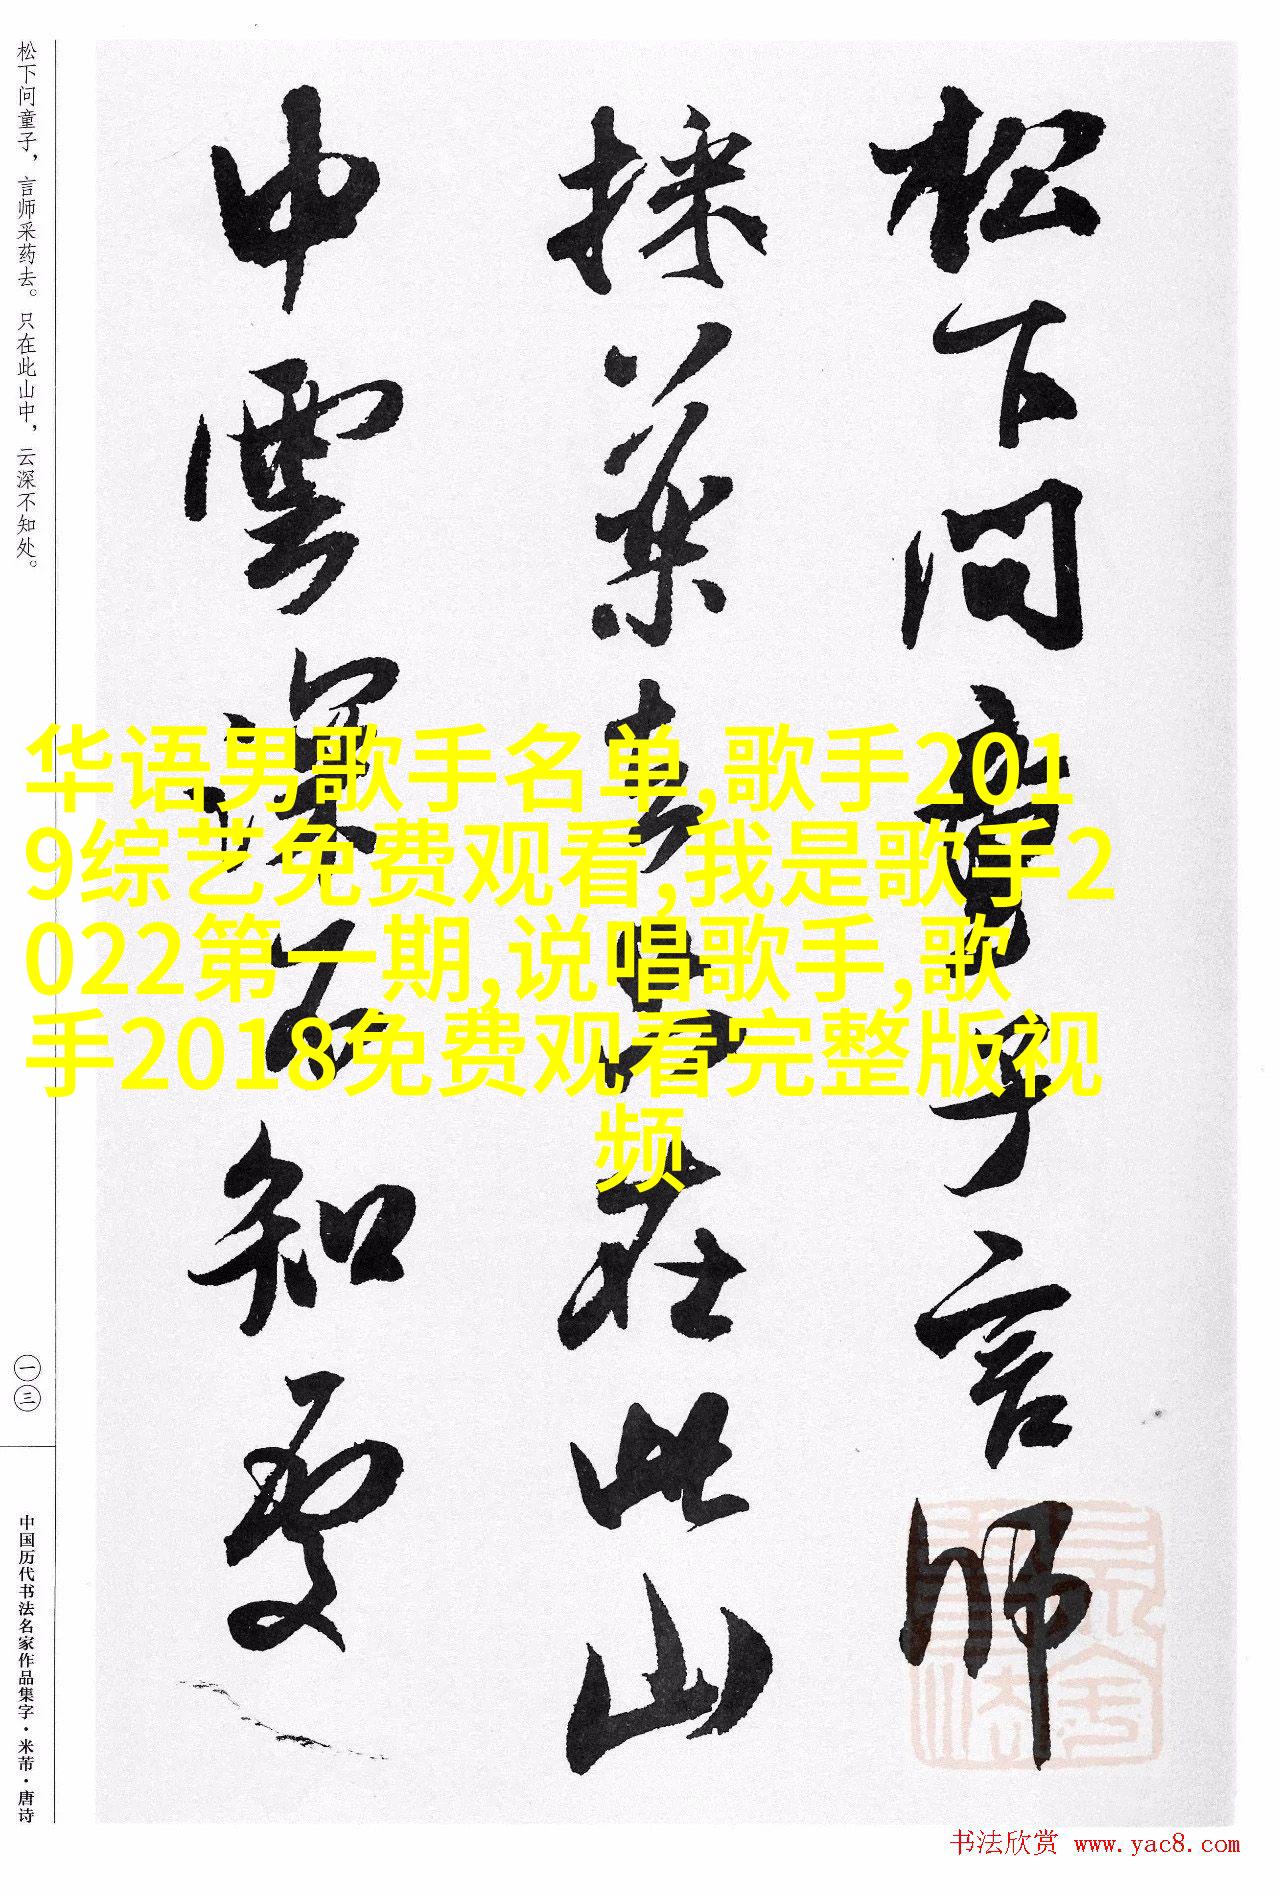 松下问童子，言师采药去。只在此山中，云深不知处。
一三
中国历代书法名家作品集字·米芾·唐诗
松下问童子言师
採药去只在此山
中雲深不知處
华语男歌手名单,歌手201
9综艺免费观看,我是歌手2
022第一期,说唱歌手,歌
手2018免费观看完整版视
频
书法欣赏 www.yac8.com